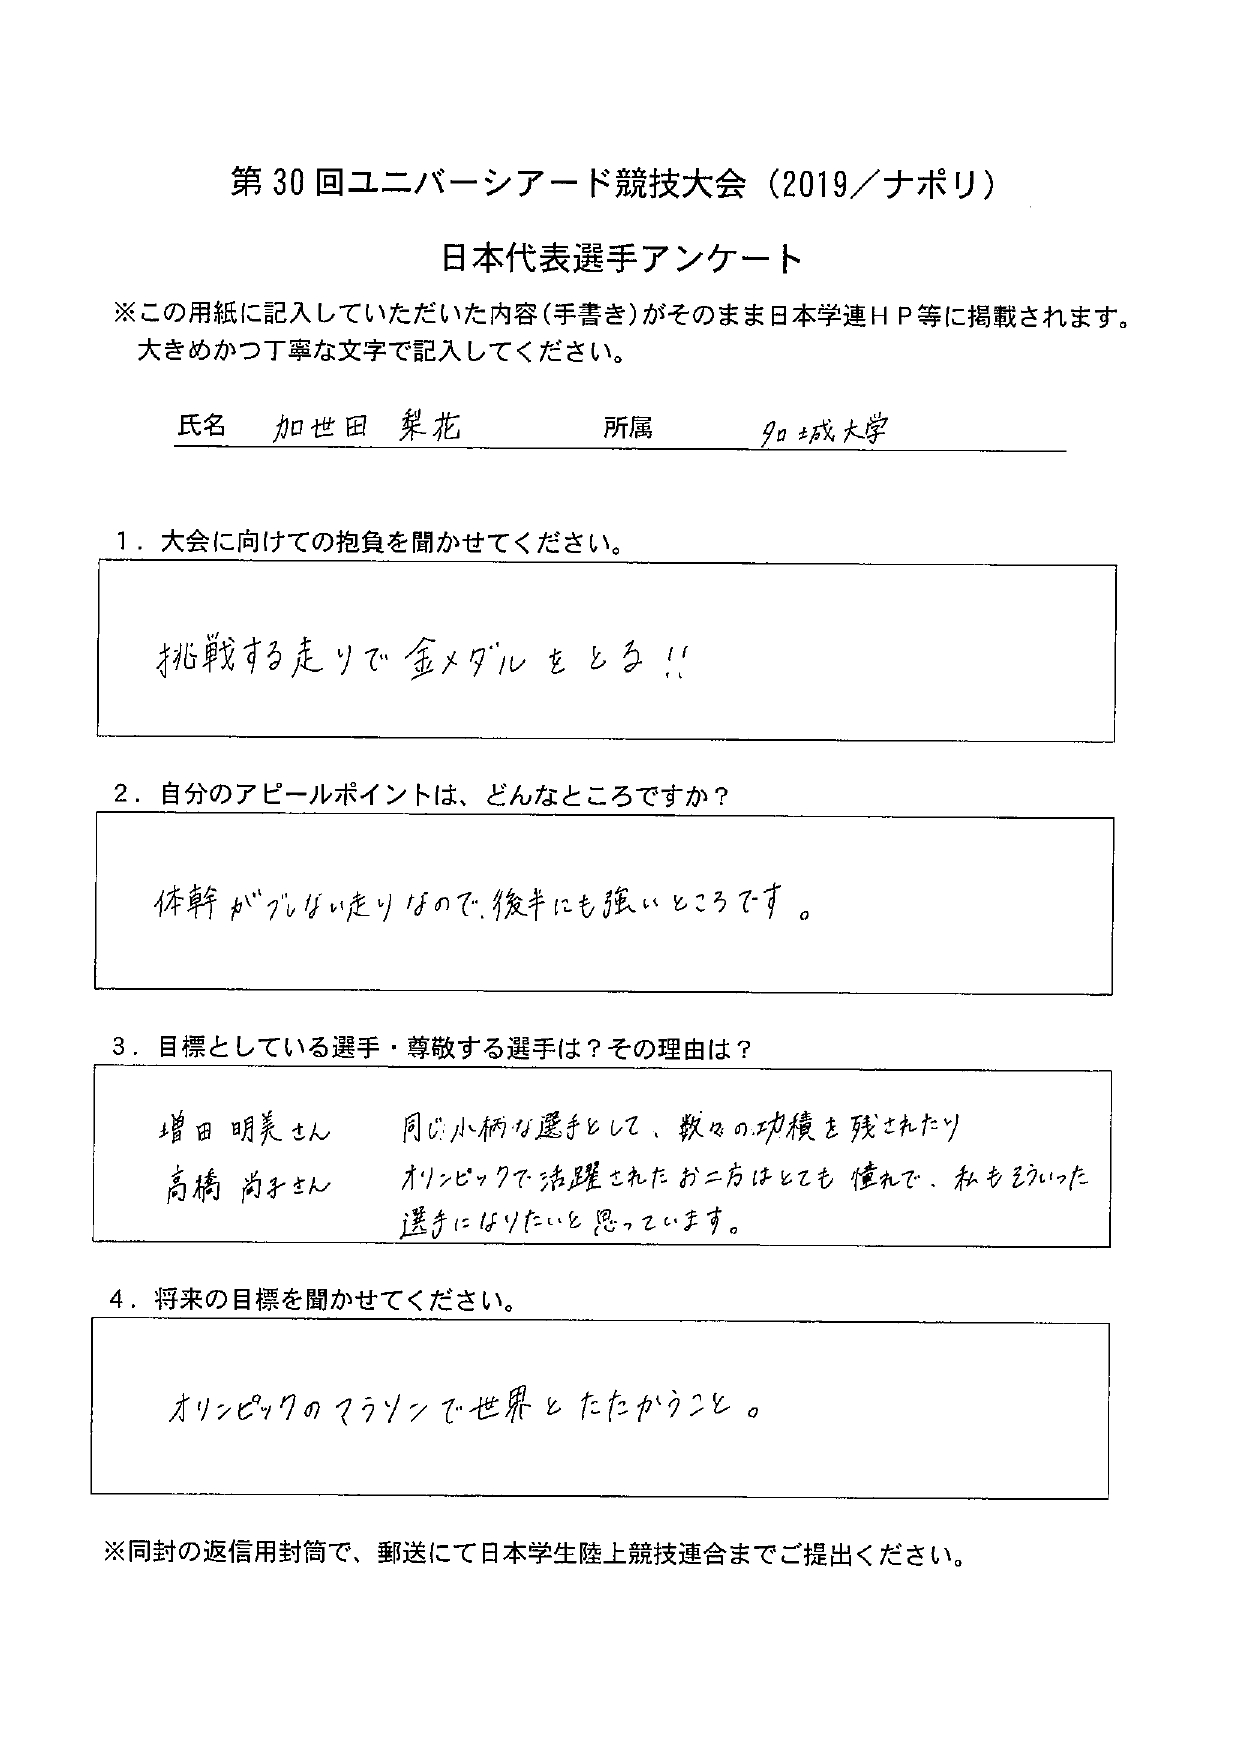 第30回ユニバーシアード競技大会（2019／ナポリ）
日本代表選手アンケート
※この用紙に記入していただいた内容(手書き)がそのまま日本学連ＨＰ等に掲載されます。
大きめかつ丁寧な文字で記入してください。
氏名 加世田 梨花 所属 名城大学
1．大会に向けての抱負を聞かせてください。
挑戦する走りで金メダルをとる!!
2．自分のアピールポイントは、どんなところですか？
体幹がブレない走りなので、後半にも強いところです。
3．目標としている選手・尊敬する選手は？その理由は？
増田 明美さん 同じ小柄な選手として、数々の功積を残されたり
高橋 尚子さん オリンピックで活躍されたお二方はとても憧れで、私もそういった
選手になりたいと思っています。
4．将来の目標を聞かせてください。
オリンピックのマラソンで世界とたたかうこと。
※同封の返信用封筒で、郵送にて日本学生陸上競技連合までご提出ください。